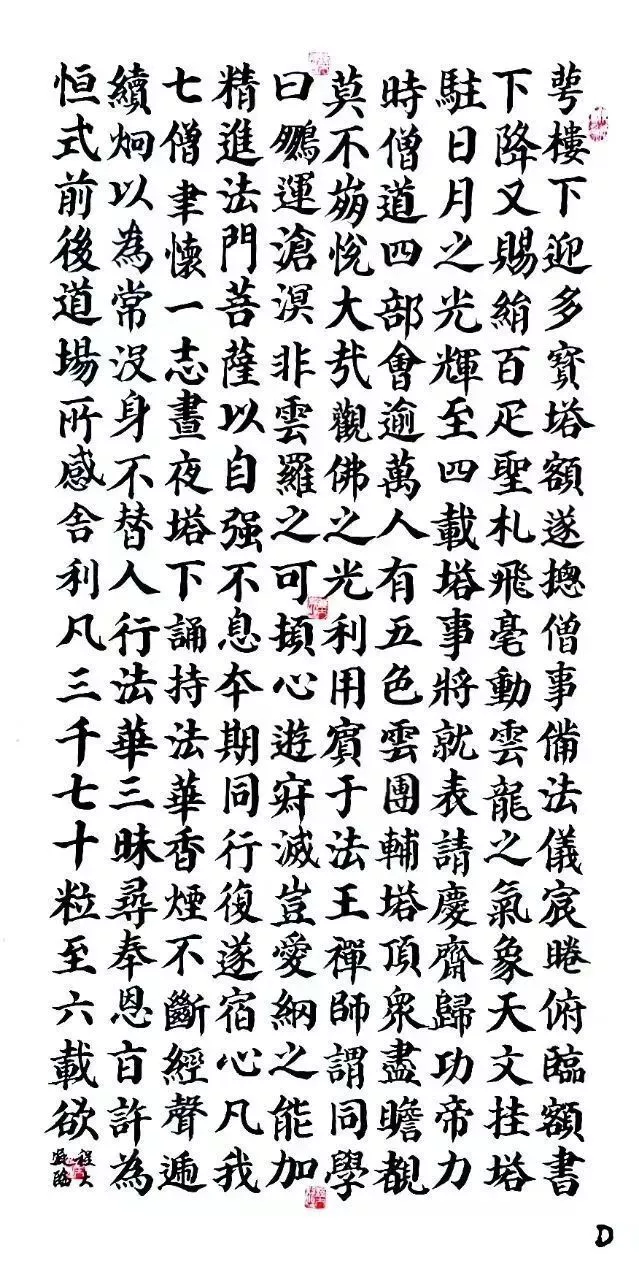 萼樓下迎多寶塔額遂摠僧事備法儀宸睠俯臨額書
下降又賜絹百疋聖札飛毫動雲龍之氣象天文挂塔
駐日月之光輝至四載塔事將就表請慶齋歸功帝力
時僧道四部會逾萬人有五色雲團輔塔頂衆盡瞻覩
莫不崩悅大哉觀佛之光利用賓于法王禪師謂同學
曰鵬運滄溟非雲羅之可頓心遊寂滅豈愛網之能加
精進法門菩薩以自强不息本期同行復遂宿心凡我
七僧聿懷一志晝夜塔下誦持法華香煙不斷經聲遞
續炯以為常沒身不替人行法華三昧尋奉恩旨許為
恒式前後道場所感舍利凡三千七十粒至六載欲
程大
臨
D